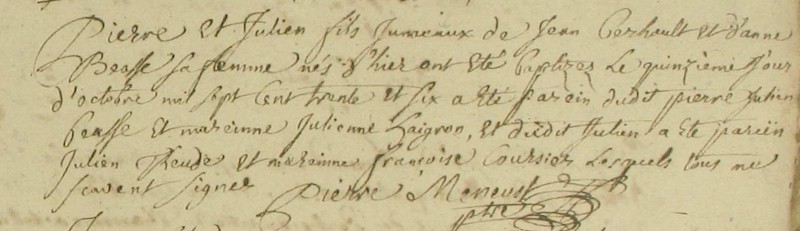 Pierre et Julien fils Jumeaux de Jean Gerhault et d'anne
Beasse sa femme nés d'hier ont eté baptizés le quinzieme Jour
d'octobre mil sept cent trente et six a eté parein dudit pierre Julien
Beasse et mareinne Julienne et dudit Julien a ete parein
Julien et mareinne françoise Coursier lesquels tous ne
scavent signer
Pierre Meneust
ptre